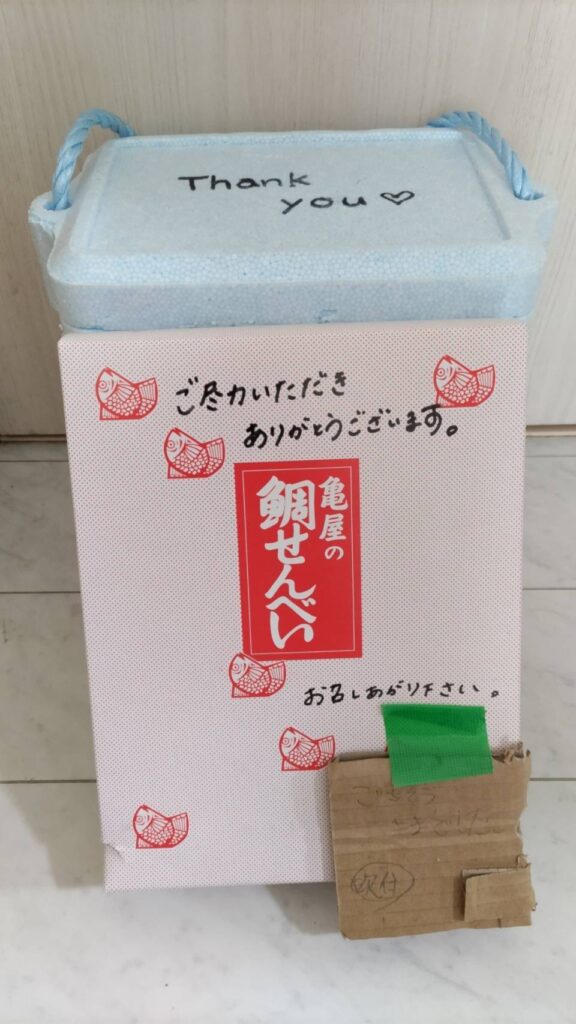 Thank
you♡
ご尽力いただき
ありがとうございます。
亀屋の
鯛せんべい
お召しあがり下さい。
ごちそう
さまでした
吹付